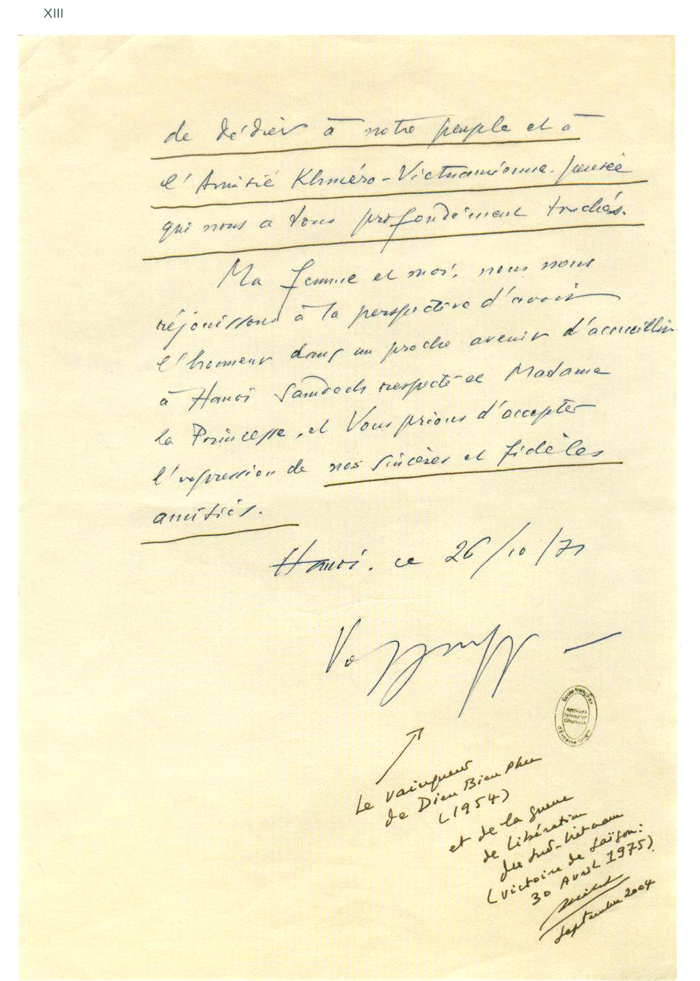 XIII
de dédier à notre peuple et à
l'Amitié Khméro-Vietnamienne. pensée
qui nous a tous profondément touchés.
Ma femme et moi, nous nous
réjouissons à la perspective d'avoir
l'honneur dans un proche avenir d'accueillir
à Hanoi Samdech respecté et Madame
la Princesse, et Vous prions d'accepter
l'expression de nos sincères et fidèles
amitiés.
Hanoi. ce 26/10/71
Le vainqueur
de Dien Bien Phu
(1954)
et de la guerre
de Libération
du Sud-Vietnam
(victoire de Saïgon:
30 Avril 1975)
Septembre 2004